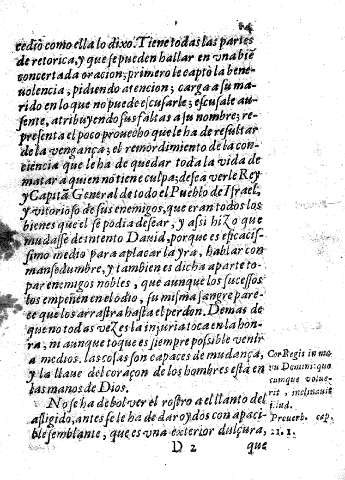 14
cedio como ella lo dixo. Tiene todas las partes
de retorica, y que se pueden hallar en vna biẽ
concertada oracion; primero le captò la bene
uolencia; pidiendo atencion; carga a su ma-
rido en lo que no puede escusarle; escusale au-
sente, atribuyendo sus faltas a su nombre; re-
presenta el poco prouecho que le ha de resultar
de la vengança; el remordimiento de la con-
ciencia que le ha de quedar toda la vida de
matar a quien no tiene culpa; deseà verle Rey
y Capitã General de todo el Pueblo de Israel,
y vitorioso de sus enemigos, que eran todos los
bienes que èl se podia desear, y assi hizo que
mudasse de intento Dauid, porque es eficacis-
simo medio para aplacar la yra, hablar con
mansedumbre, y tambien es dicha aparte to-
par enemigos nobles, que aunque los sucessos
los empeñen en el odio, su misma sangre pare-
ce que los arrastra hasta el perdon. Demas de
que no todas vezes la injuria toca en la hon-
ra; ni aunque toque es siempre possible venir
a medios. las cosas son capaces de mudança,
y la llaue del coraçon de los hombres està en
las manos de Dios.
No se ha de boluer el rostro a el llanto del
afligido, antes se le ha dar oydos con apaci-
ble semblante, que es vna exterior dulçura,
D 2 que
Cor Regis in ma
nu Domini: quo
cumque volue-
rit, inclinauit
illud.
Prouerb. cap.
21. 1.